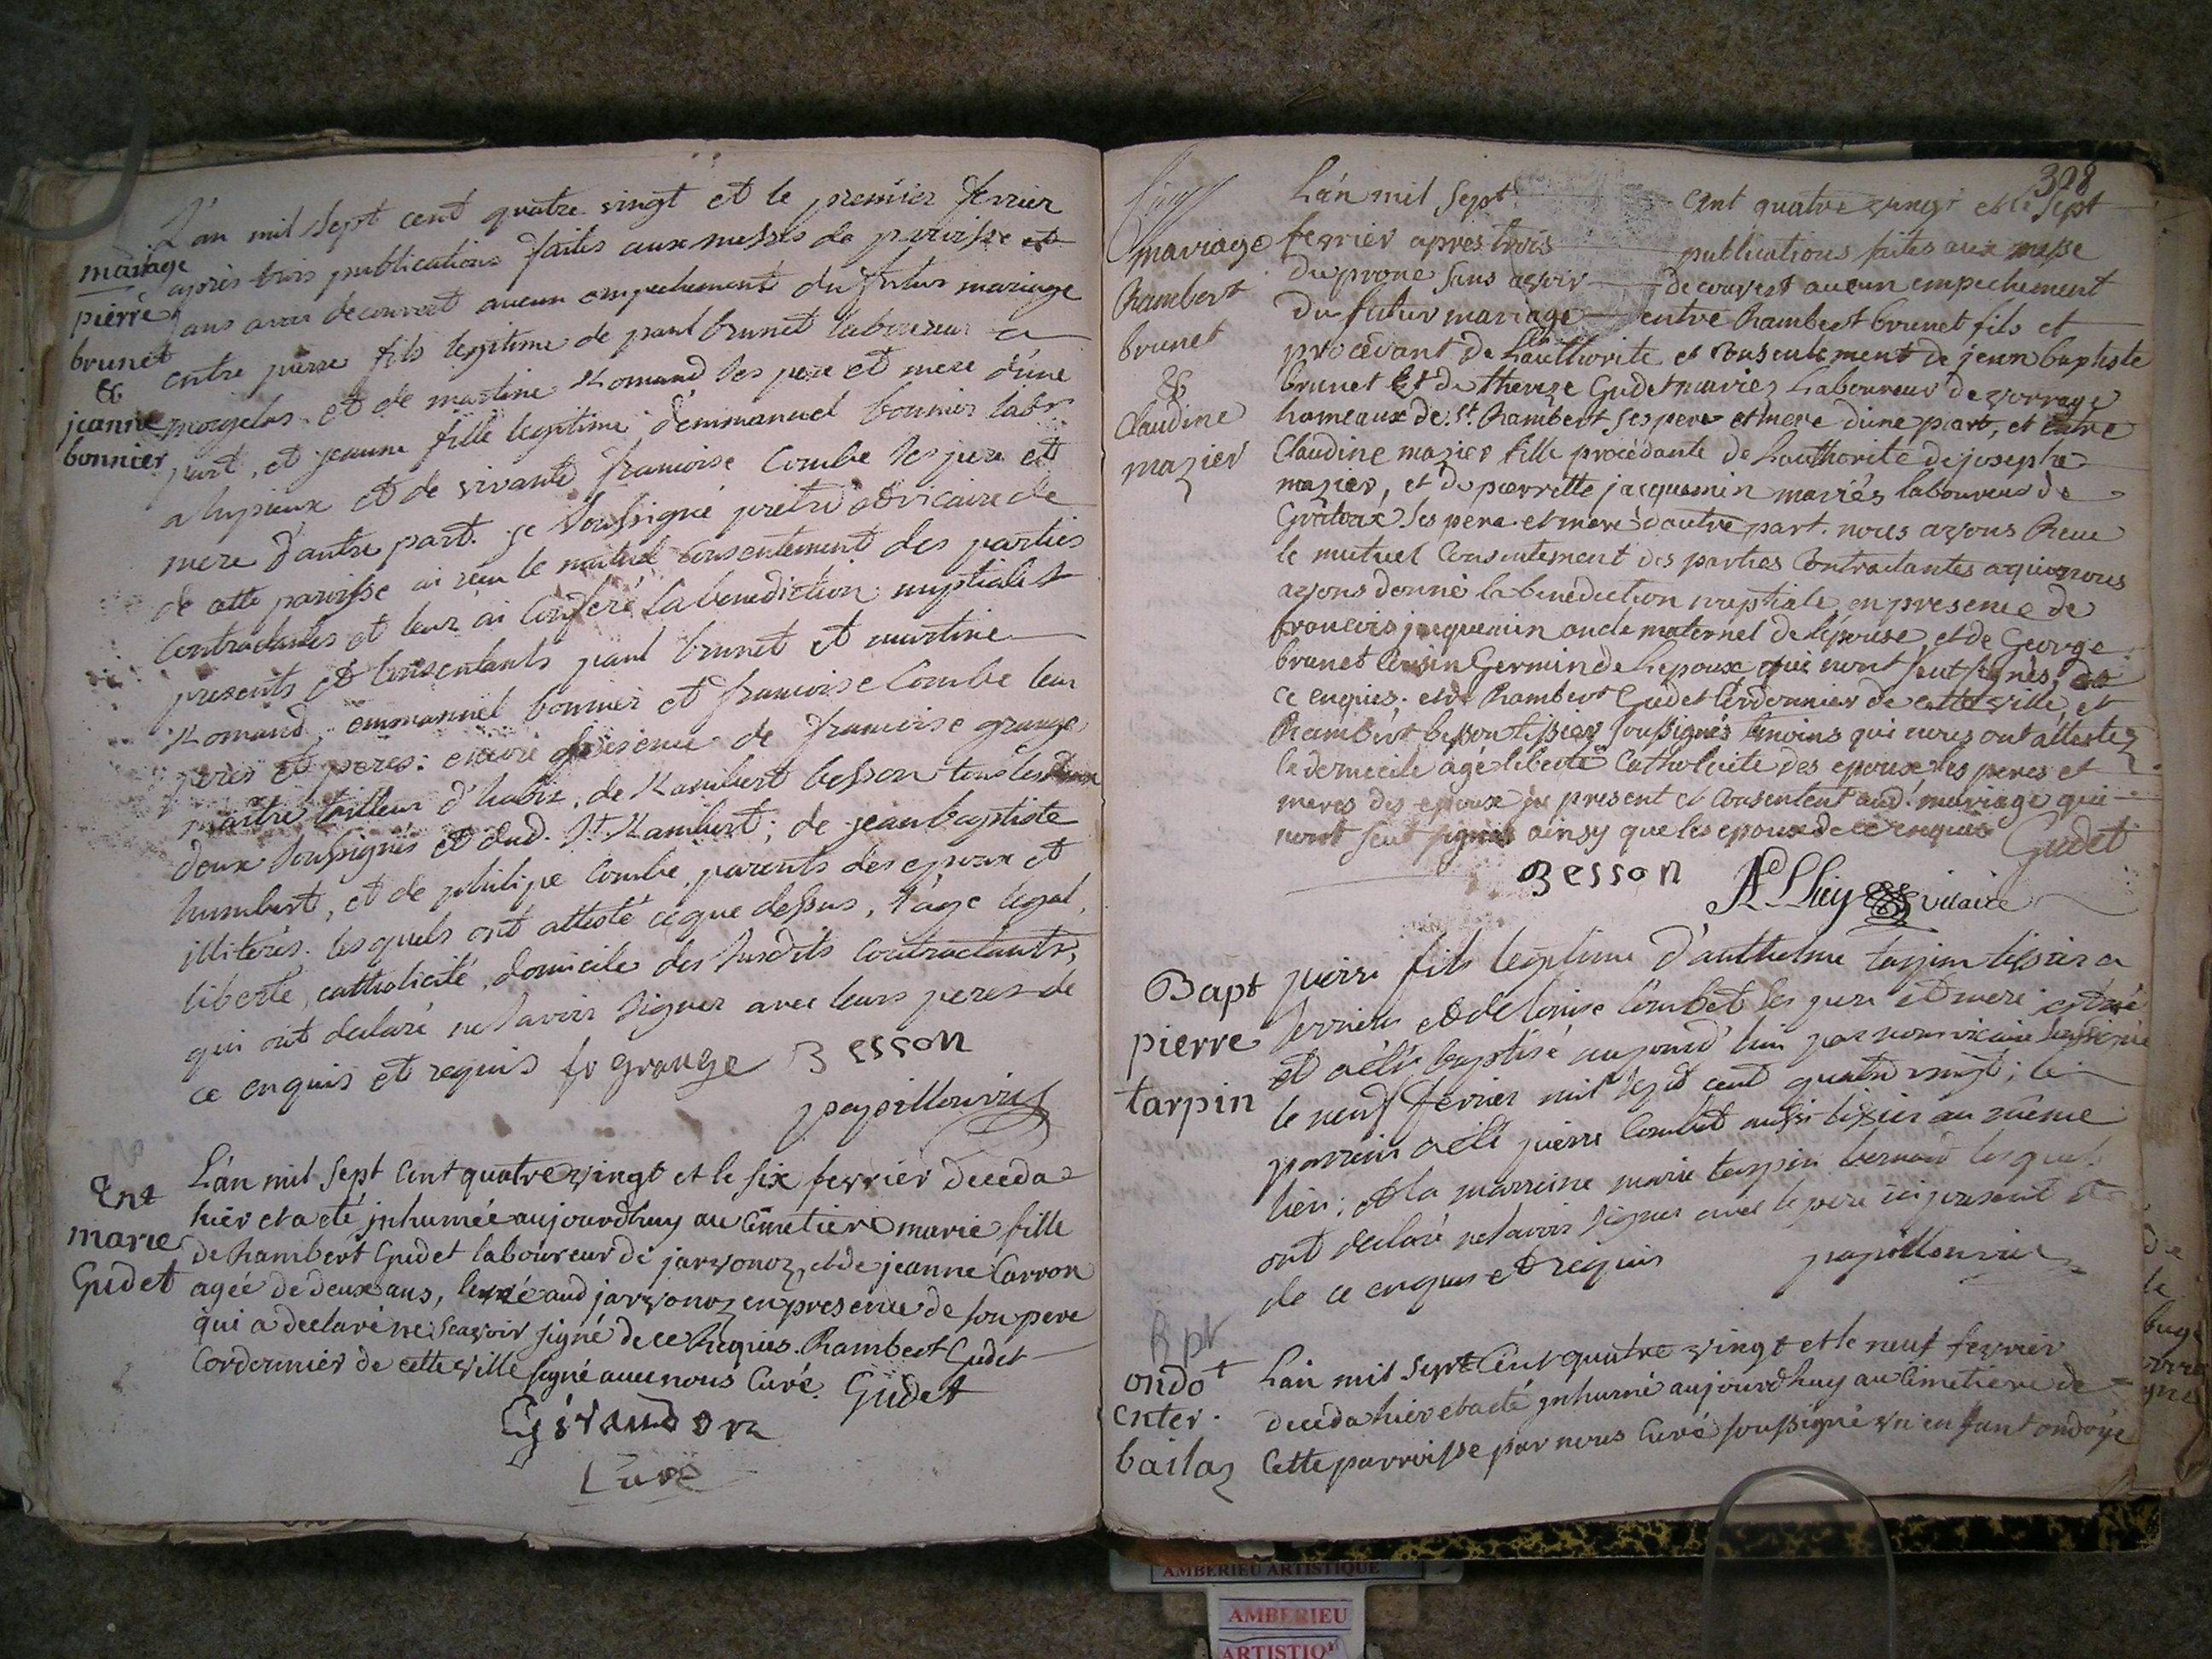 mariage
pierre
brunet
&
jeanne
bonnier
L'an mil sept cent quatre vingt et le premier fevrier
après trois publications faites aux messes de paroisse et
sans avoir decouvert aucun empechement du futur mariage
entre pierre fils legitime de paul brunet laboureur a
et de martine Romand ses pere et mere d'une
part, et jeanne fille legitime d'emmanuel bonnier labr
a lupieux et de vivante francoise Combe ses pere et
mere d'autre part. je soussigné prètre et vicaire de
de cette paroisse ai reçu le mutuel consentement des parties
contractantes et leur ai conferé la benediction nuptiale et
presents et consentants paul brunet et martine
Romand, emmanuel bonnier et francoise Combe leur
peres et meres: encore presence de francoise grange
maître tailleur d'habix, de Rambert besson tous les deux
deux soussignés et dud. St. Rambert; de jean baptiste
humbert, et de philipe Combe, parents des epoux et
illiterés. les quels ont attesté ce que dessus, l'age legal,
liberté, catholicité, domicile des susdits contractants,
qui ont declaré ne savoir signer avec leurs peres de
ce enquis et requis fr grange Besson
papillon vic
Ent
marie
Gudet
L'an mil sept cent quatre vingt et le six fevrier deceda
hier et a eté jnhumée aujourdhuy au Cimetiere marie fille
de Rambert Gudet laboureur de jarvonoz, et de jeanne Carron
agée de deux ans, aud jarvonoz en presence de son pere
qui a declaré ne scavoir signé de ce Requis. Rambert Gudet
Cordonnier de cette ville signé avec nous Curé. Gudet
Giraudon
Curé
328
mariage
Rambert
brunet
&
Claudine
mazier
L'an mil sept cent quatre vingt et le sept
fevrier apres trois publications faites aux messe
du prone sans avoir decouvert aucun empechement
du futur mariage entre Rambert brunet fils et
procédant de L'authorité et consentement de jean baptiste
brunet et de thereze Gudet mariez Laboureur de vorrage
hameaux de St. Rambert ses pere et mere dune part, et entre
Claudine mazier fille procédante de Lauthorité de joseph
mazier, et de pierrette jacquemin mariés laboureur de
Grattoux ses pere et mere d'autre part. nous avons Receu
le mutuel Consentement des parties Contractantes a qui nous
avons donné la benediction nuptiale en presence de
francois jacquemin oncle maternel de lépouse, et de George
brunet Cousin Germin de Lepoux qui n'ont seut signés, de
ce enquis. et de Rambert Gudet Cordonnier de cette ville, et
Rambert besson tissier soussignés temoins qui nous ont attestez
le domicile age liberté Catholicité des epoux les peres et
meres des epoux present et Consentent aud. mariage qui
n'ont seut signés ainsy que les epoux de ce enquis Gudet
Besson vicaire
Bapt
pierre
tarpin
pierre fils legitime d'anthelme tarpin tissier a
Serrieres et de louise Combet ses pere et mere est né
et a été baptisé aujourd'hui par nous vicaire soussigné
le neuf fevrier mil sept cent quatre vingt; le
parrain a été pierre Combet aussi tissier au même
lieu; et la marreine marie tarpin lesquels
ont declaré ne savoir signer avec le pere ici present
de ce enquis et requis papillon vic
Bpt
ondot
enter.
bailaz
L'an mil sept Cent quatre vingt et le neuf fevrier
deceda hier et a eté jnhumé aujourdhuy au Cimetiere de
Cette parroisse par nous Curé soussigné vn enfant ondoyé
AMBERIEU ARTISTIQUE
AMBERIEU
ARTISTIQ